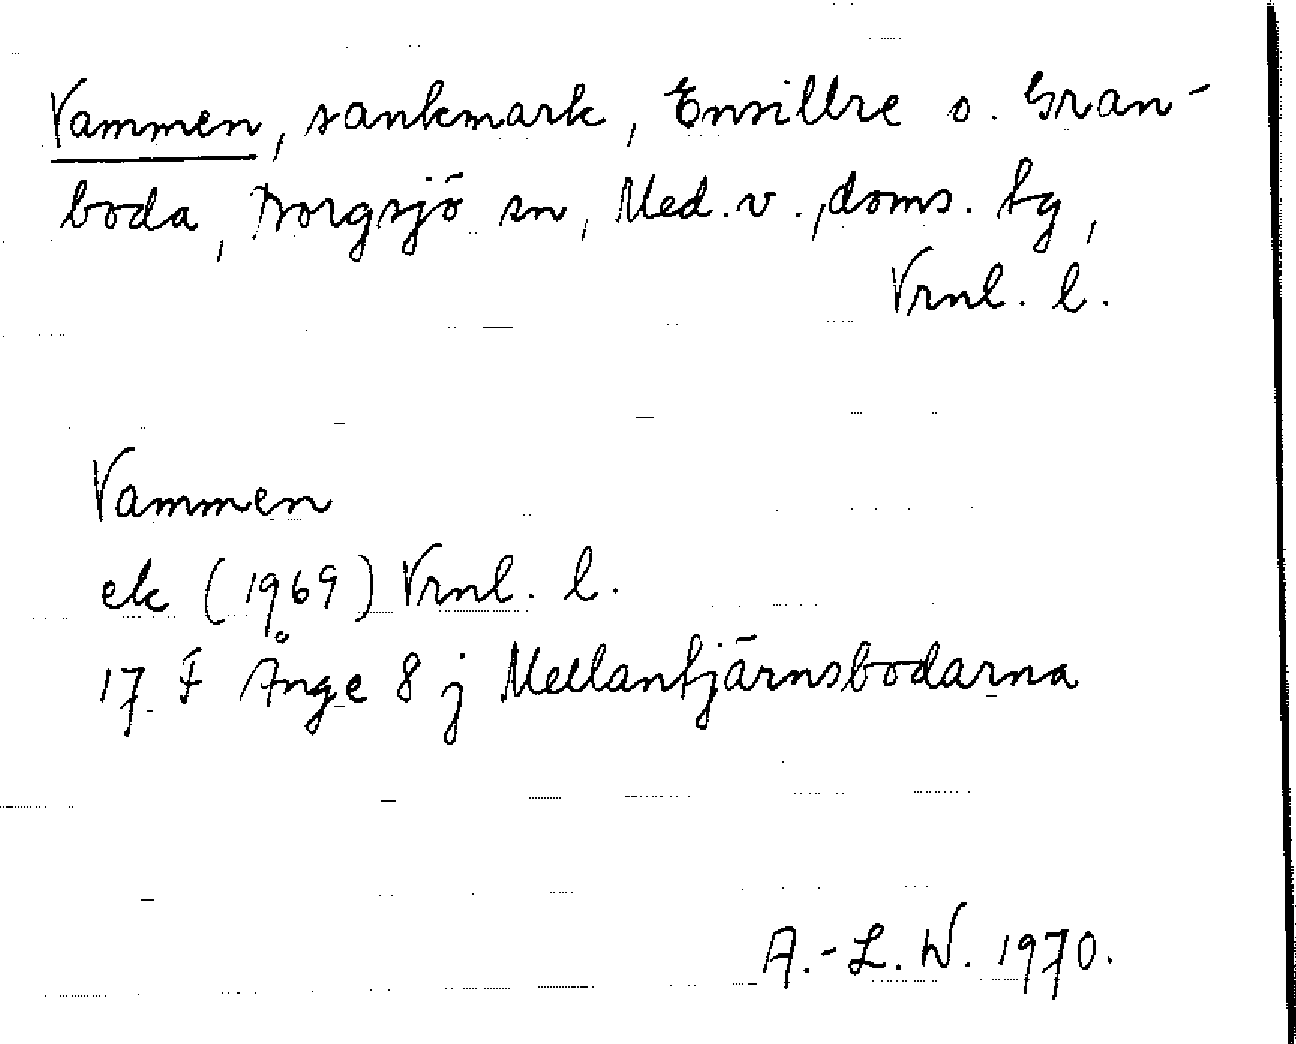 Vammen, sankmark, Ensillre o. Gran-
boda, Borgsjö sn, Med. v., doms. tg,
Vrnl. l.
Vammen
ek (1969) Vrnl. l.
17 F Ånge 8 j Mellantjärnsbodarna
A.-L. W. 1970.